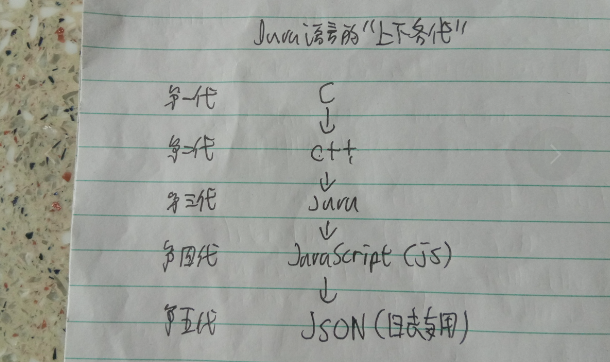 Java语言的“上下各代”
第一代 C
↓
第二代 C++
↓
第三代 Java
↓
第四代 JavaScript (js)
↓
第五代 JSON (日志专用)